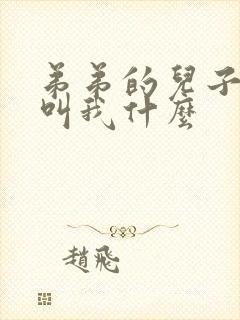 弟弟的兒子
叫我什麼
趙飛